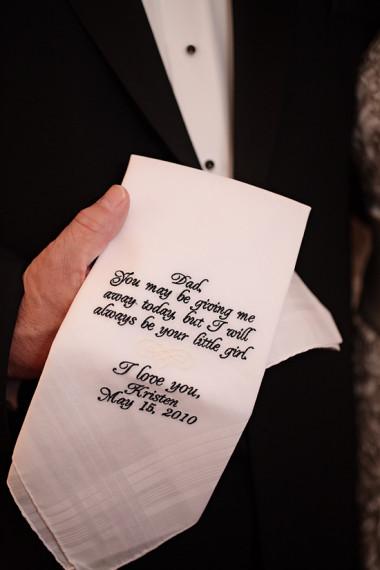 Dad,
You may be giving me
away today, but I will
always be your little girl.
I love you,
Kristen
May 15, 2010